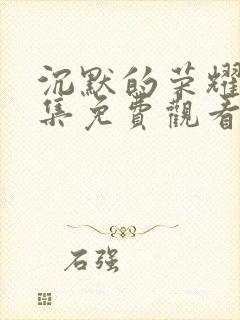 沉默的荣耀
集免費觀看
石强